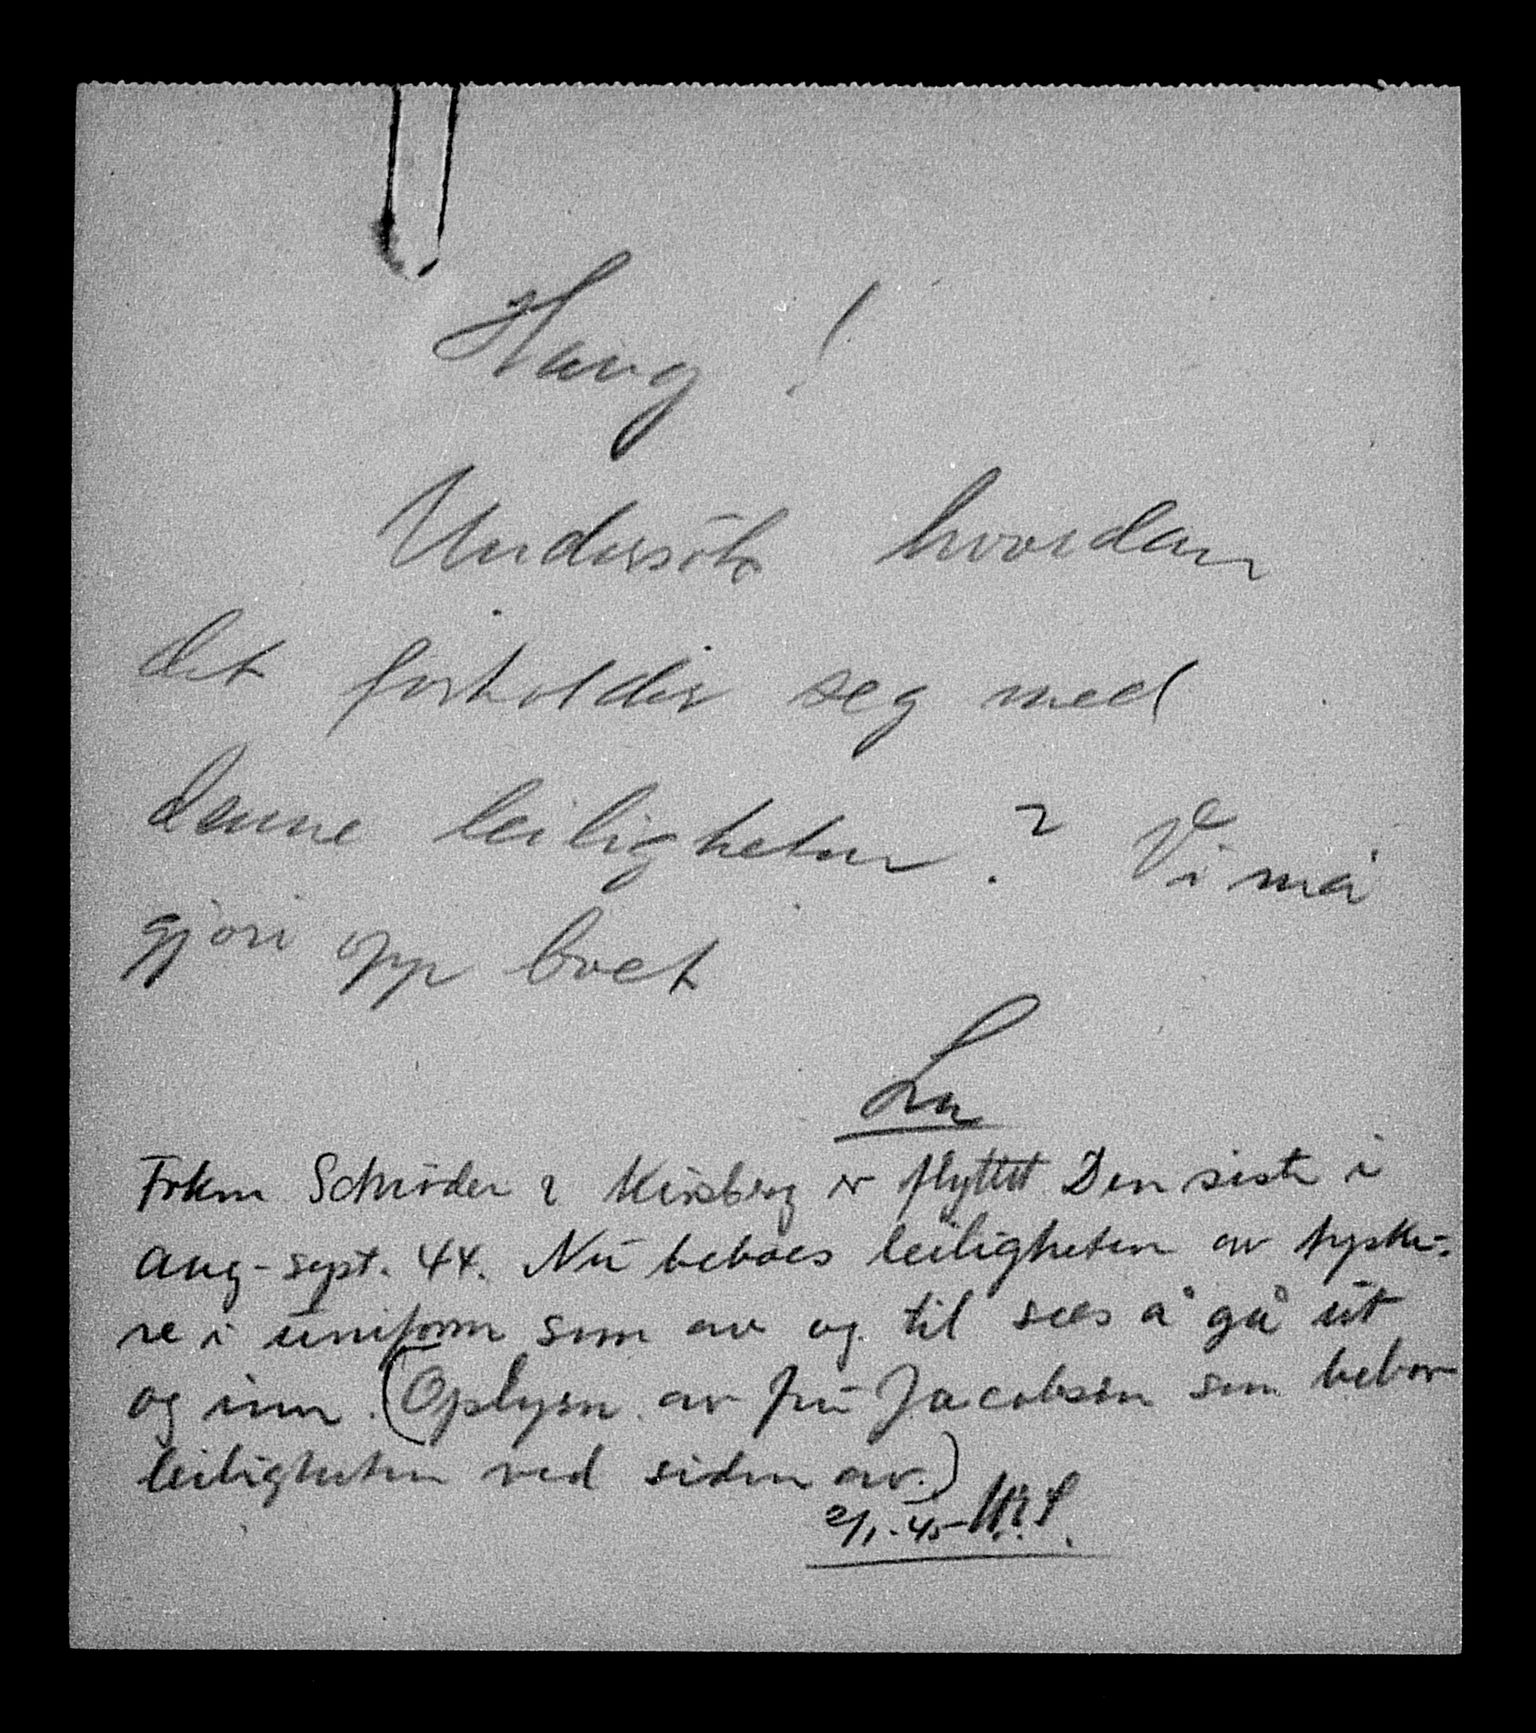 Haug!
Undersök hvordan
det forholder seg med
denne leiligheten? Vi må
gjöre opp boet
Frkn Schröder & Kirsberg er flyttet Den siste i
aug-sept. 44. Nu beboes leiligheten av tyske-
re i uniform som av og til sees å gå ut
og inn. (Oplysn. av fru Jacobsen som bebor
leiligheten ved siden av.)
2/1-45